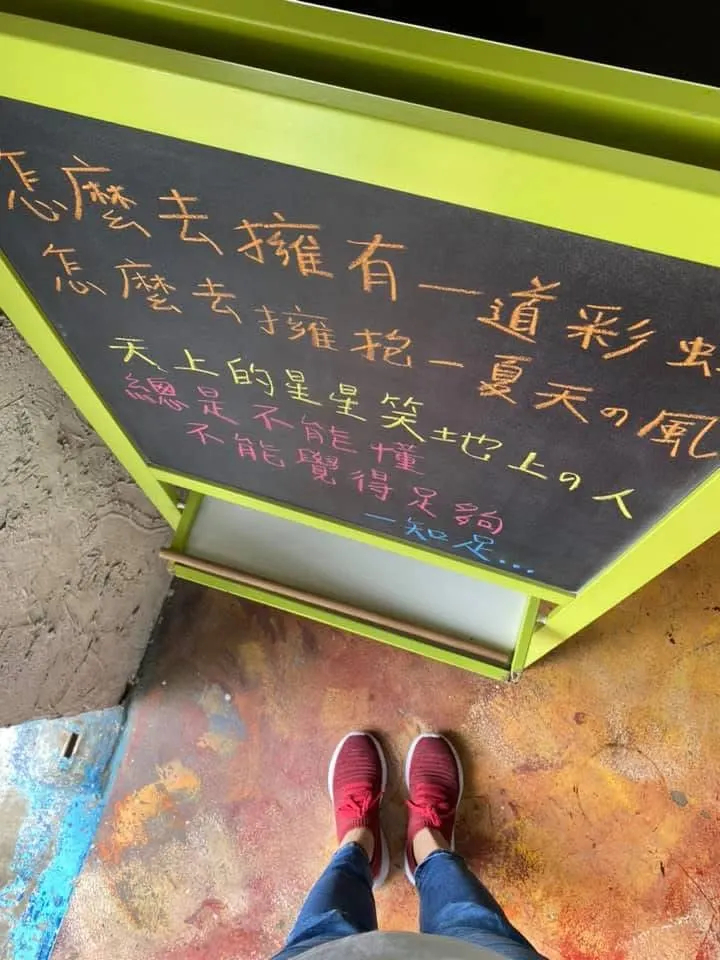 怎麼去擁有一道彩虹
怎麼去擁抱一夏天の風
天上的星星笑地上の人
總是不能懂
不能覺得足夠
一知足...